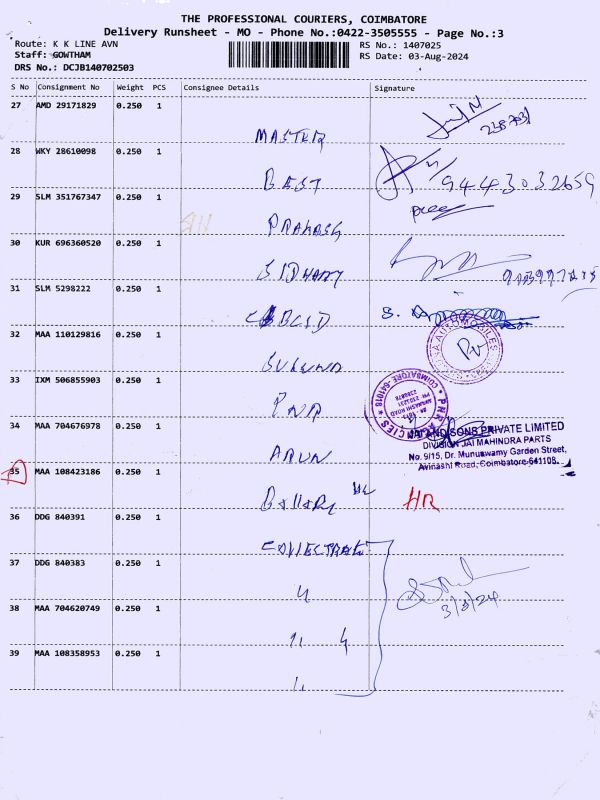 THE PROFESSIONAL COURIERS, COIMBATORE
Delivery Runsheet - MO - Phone No.:0422-3505555 - Page No.:3
Route: K K LINE AVN
RS No.: 1407025
Staff: GOWTHAM
RS Date: 03-Aug-2024
DRS No.: DCJB140702503
S No Consignment No Weight PCS Consignee Details Signature
27 AMD 29171829 0.250 1
MASTER
28 WKY 28610098 0.250 1
BEST
9443032659
29 SLM 351767347 0.250 1
PRAKASH
30 KUR 696360520 0.250 1
31 SLM 5298222 0.250 1
32 MAA 110129816 0.250 1
33 IXM 506855903 0.250 1
PNR
COIMBATORE - 641018
34 MAA 704676978 0.250 1
ARUN
JAI AND SONS PRIVATE LIMITED
DIVISION JAI MAHINDRA PARTS
No. 9/15, Dr. Munuswamy Garden Street,
Avinashi Road, Coimbatore-641108.
35 MAA 108423186 0.250 1
HR
36 DDG 840391 0.250 1
37 DDG 840383 0.250 1
3/8/24
38 MAA 704620749 0.250 1
39 MAA 108358953 0.250 1